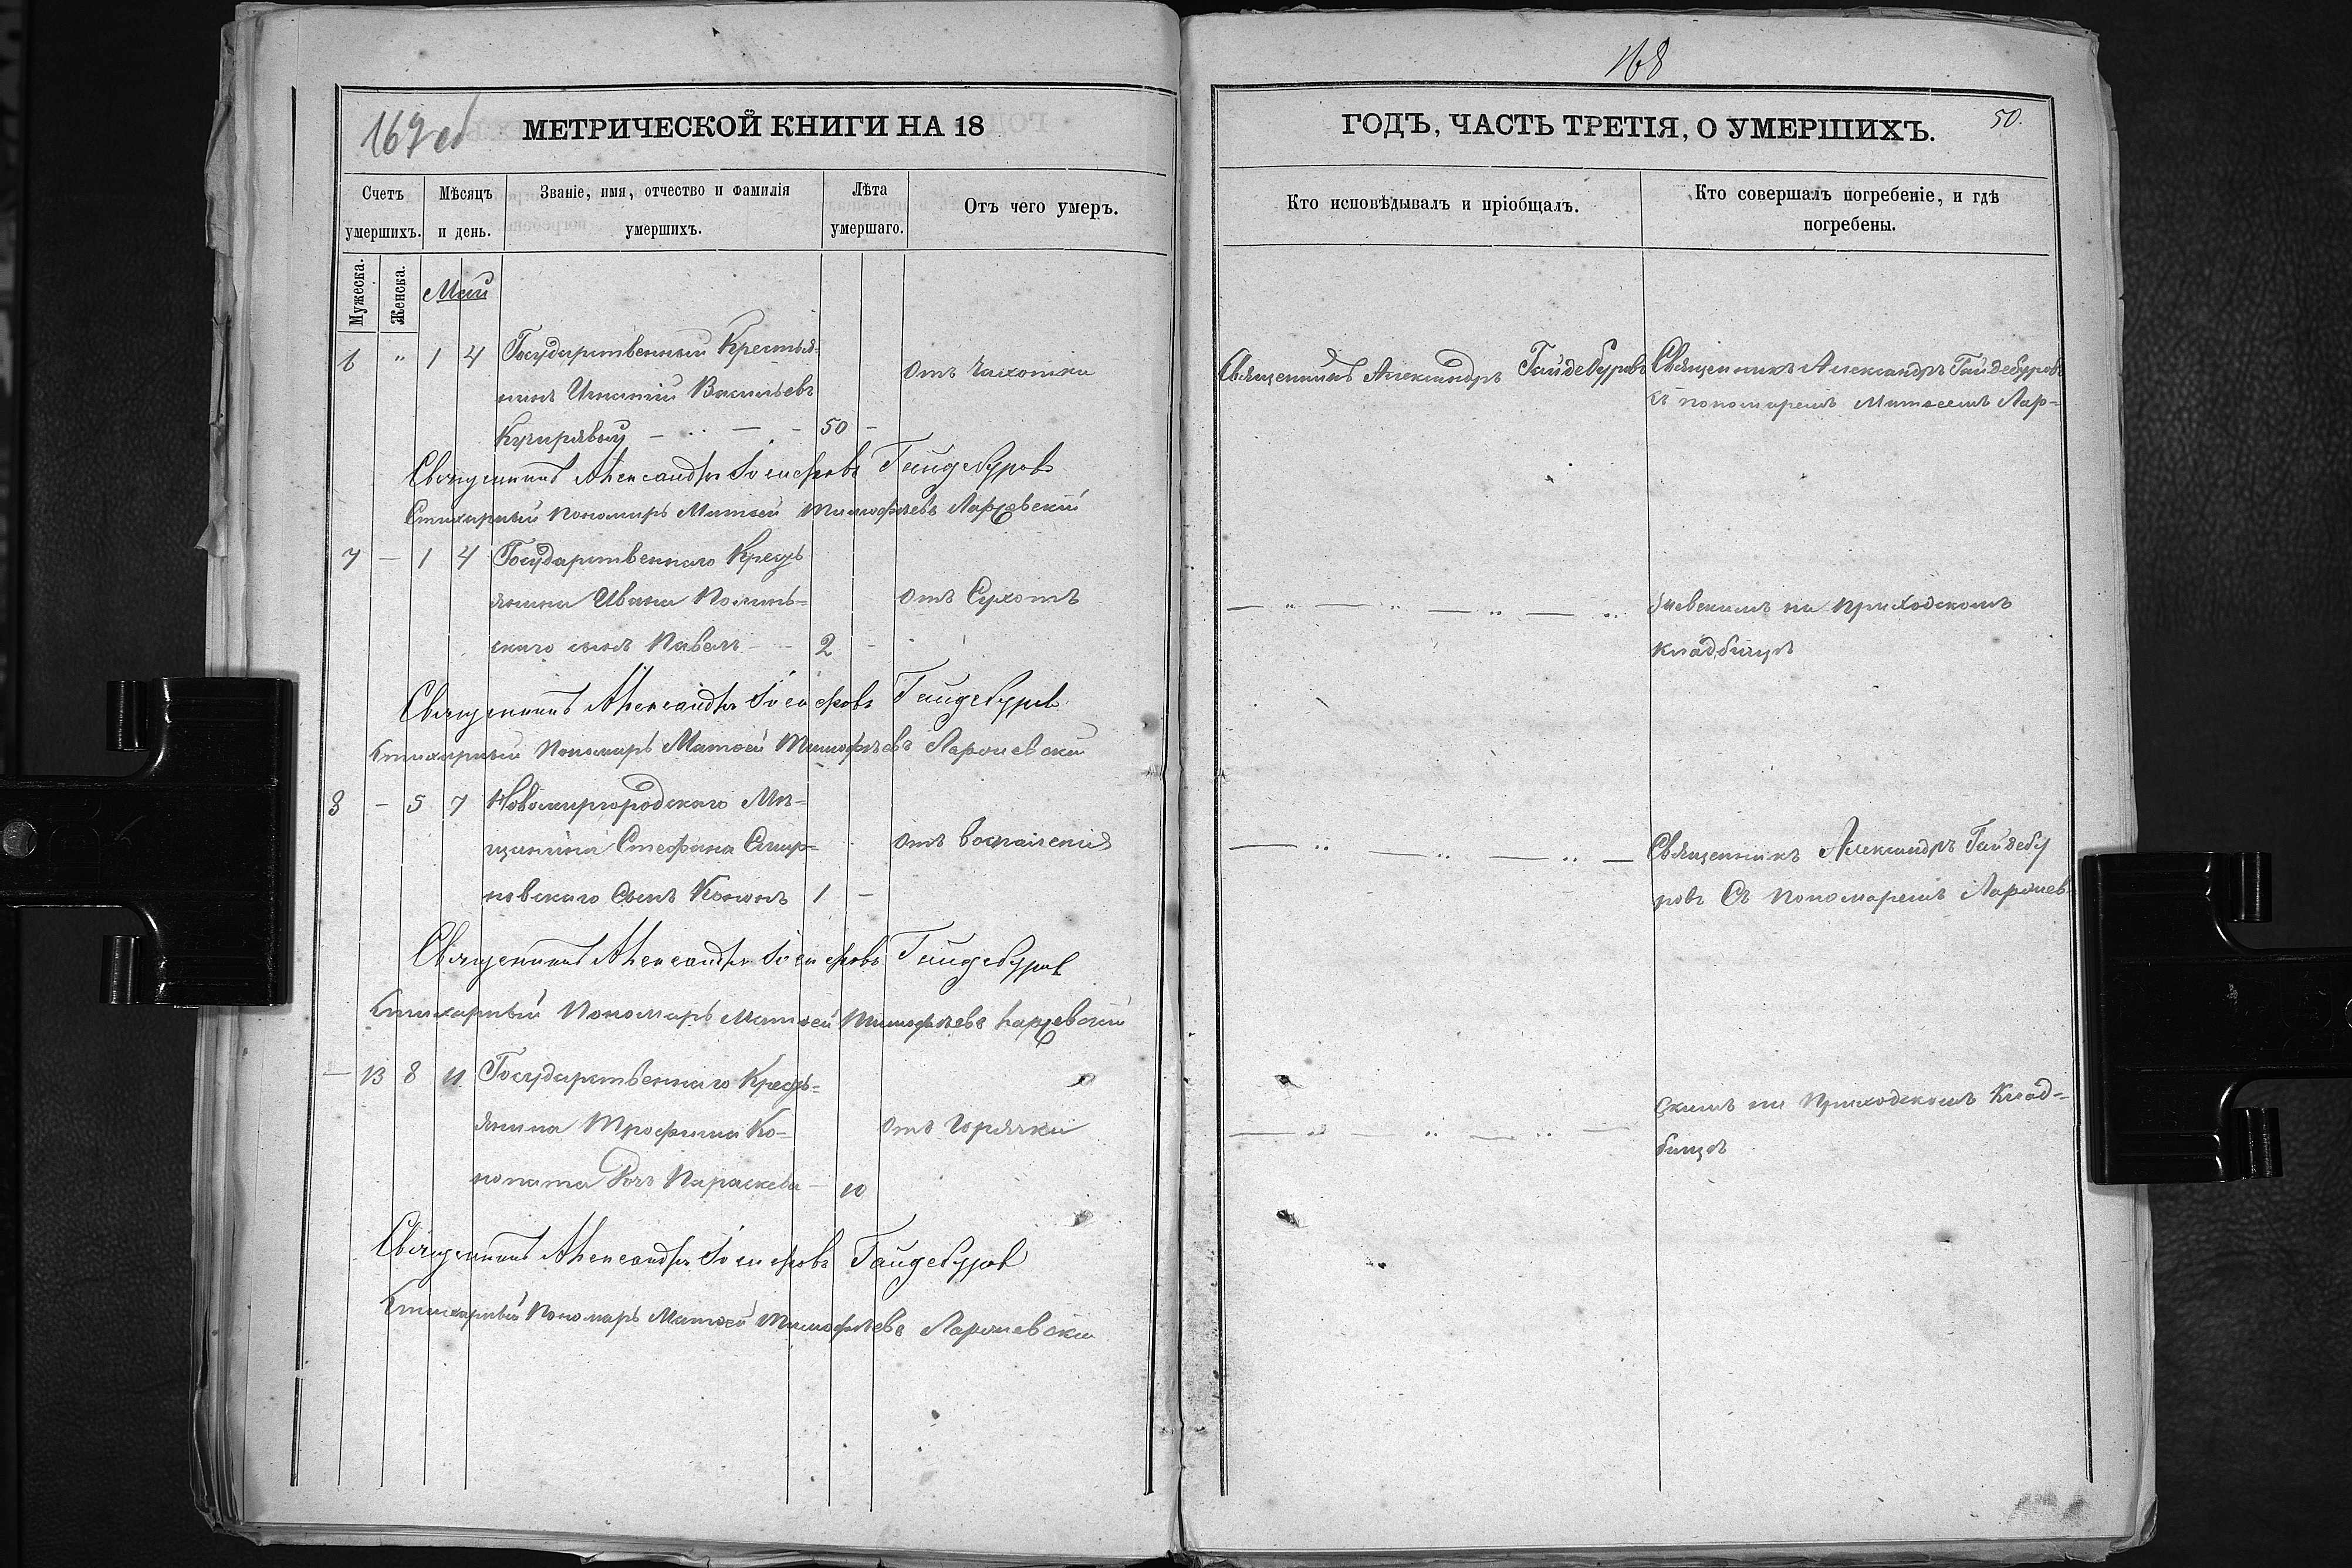 167 об
МЕТРИЧЕСКОЙ КНИГИ НА 18
Счетъ умершихъ.
Мѣсяцъ и день.
Званіе, имя, отчество и фамилія умершихъ.
Лѣта умершаго.
Отъ чего умеръ.
Мужеска.
Женска.
Май
6 " 1 4 Государственный Крестья-
нинъ Игнатій Васильевъ
50
отъ Чахотки
Священникъ Александръ Іосифовъ Гайдебуровъ
Стихарный Пономарь Матѳей Тимофѣевъ
7 - 1 4 Государственнаго Кресть
янина Ивана
скаго сынъ Павелъ - 2 -
отъ Сухотъ
Священникъ Александръ Іосифовъ Гайдебуровъ
Стихарный Пономарь Матѳей Тимофѣевъ
8 - 5 7 Новомиргородскаго Мѣ-
щанина Стефана Смир-
новскаго Сынъ Кононъ 1 -
отъ воспаленія
Священникъ Александръ Іосифовъ Гайдебуровъ
Стихарный Пономарь Матѳей Тимофѣевъ
- 13 8 11 Государственнаго Кресть-
янина Трофима Ко-
нопата Дочь Параскева - 10
отъ Горячки
Священникъ Александръ Іосифовъ Гайдебуровъ
Стихарный Пономарь Матѳей Тимофѣевъ
168
ГОДЪ, ЧАСТЬ ТРЕТІЯ, О УМЕРШИХЪ.
50.
Кто исповѣдывалъ и пріобщалъ.
Кто совершалъ погребеніе, и гдѣ
погребены.
Священникъ Александръ Гайдебуровъ
Священникъ Александръ Гайдебуровъ
съ пономаремъ Матѳеемъ Лар-
на приходскомъ
кладбищѣ
Священникъ Александръ Гайдебу
ровъ Съ пономаремъ
скимъ на Приходскомъ Клад-
бищѣ